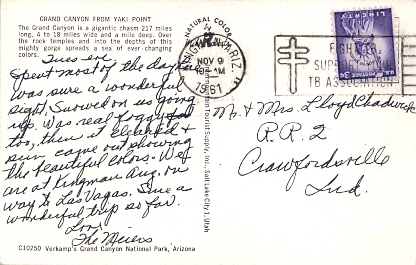 GRAND CANYON FROM YAKI POINT
The Grand Canyon is a gigantic chasm 217 miles
long, 4 to 18 miles wide and a mile deep. Over
the rock temples and into the depths of this
mighty gorge spreads a sea of ever-changing
colors.
Tues eve
Spent most of the day here
was sure a wonderful
sight. Snowed on us going
up. Was real foggy
too, then it cleared &
sun came out showing
the beautiful colors. We
are at Kingman Ariz. on
way to Las Vegas. Sure a
wonderful trip so far.
Love
The Meiers
C10250 Verkamp's Grand Canyon National Park, Arizona
NATURAL COLOR
Tourist Supply, Inc., Salt Lake City 1, Utah
KINGMAN, ARIZ.
NOV 9
AM
1961
FIGHT TB
SUPPORT YOUR
TB ASSOCIATION
3¢
Mr. & Mrs. Lloyd Chadwick
R.R. 2
Crawfordsville
Ind.